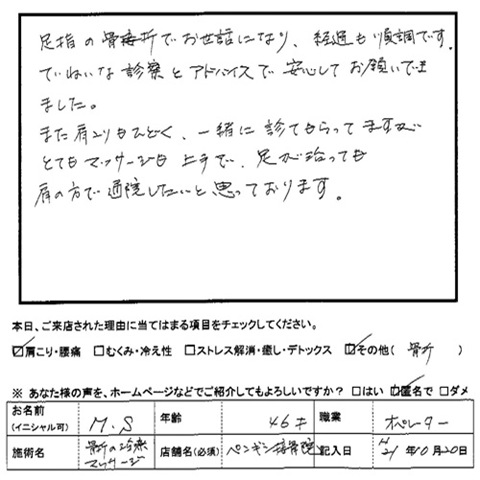 足指の骨折でお世話になり、経過も順調です。
ていねいな診察とアドバイスで安心してお願いでき
ました。
また肩こりもひどく、一緒に診てもらってますが
とてもマッサージも上手で、足が治っても
肩の方で通院したいと思っております。
本日、ご来店された理由に当てはまる項目をチェックしてください。
☑肩こり・腰痛 □むくみ・冷え性 □ストレス解消・癒し・デトックス ☑その他( 骨折 )
※ あなた様の声を、ホームページなどでご紹介してもよろしいですか? □はい ☑匿名で □ダメ
お名前(イニシャル可) M.S 年齢 46才 職業 オペレーター
施術名 骨折の治療 マッサージ 店舗名(必須) ペンギン接骨院 記入日 H21年10月20日